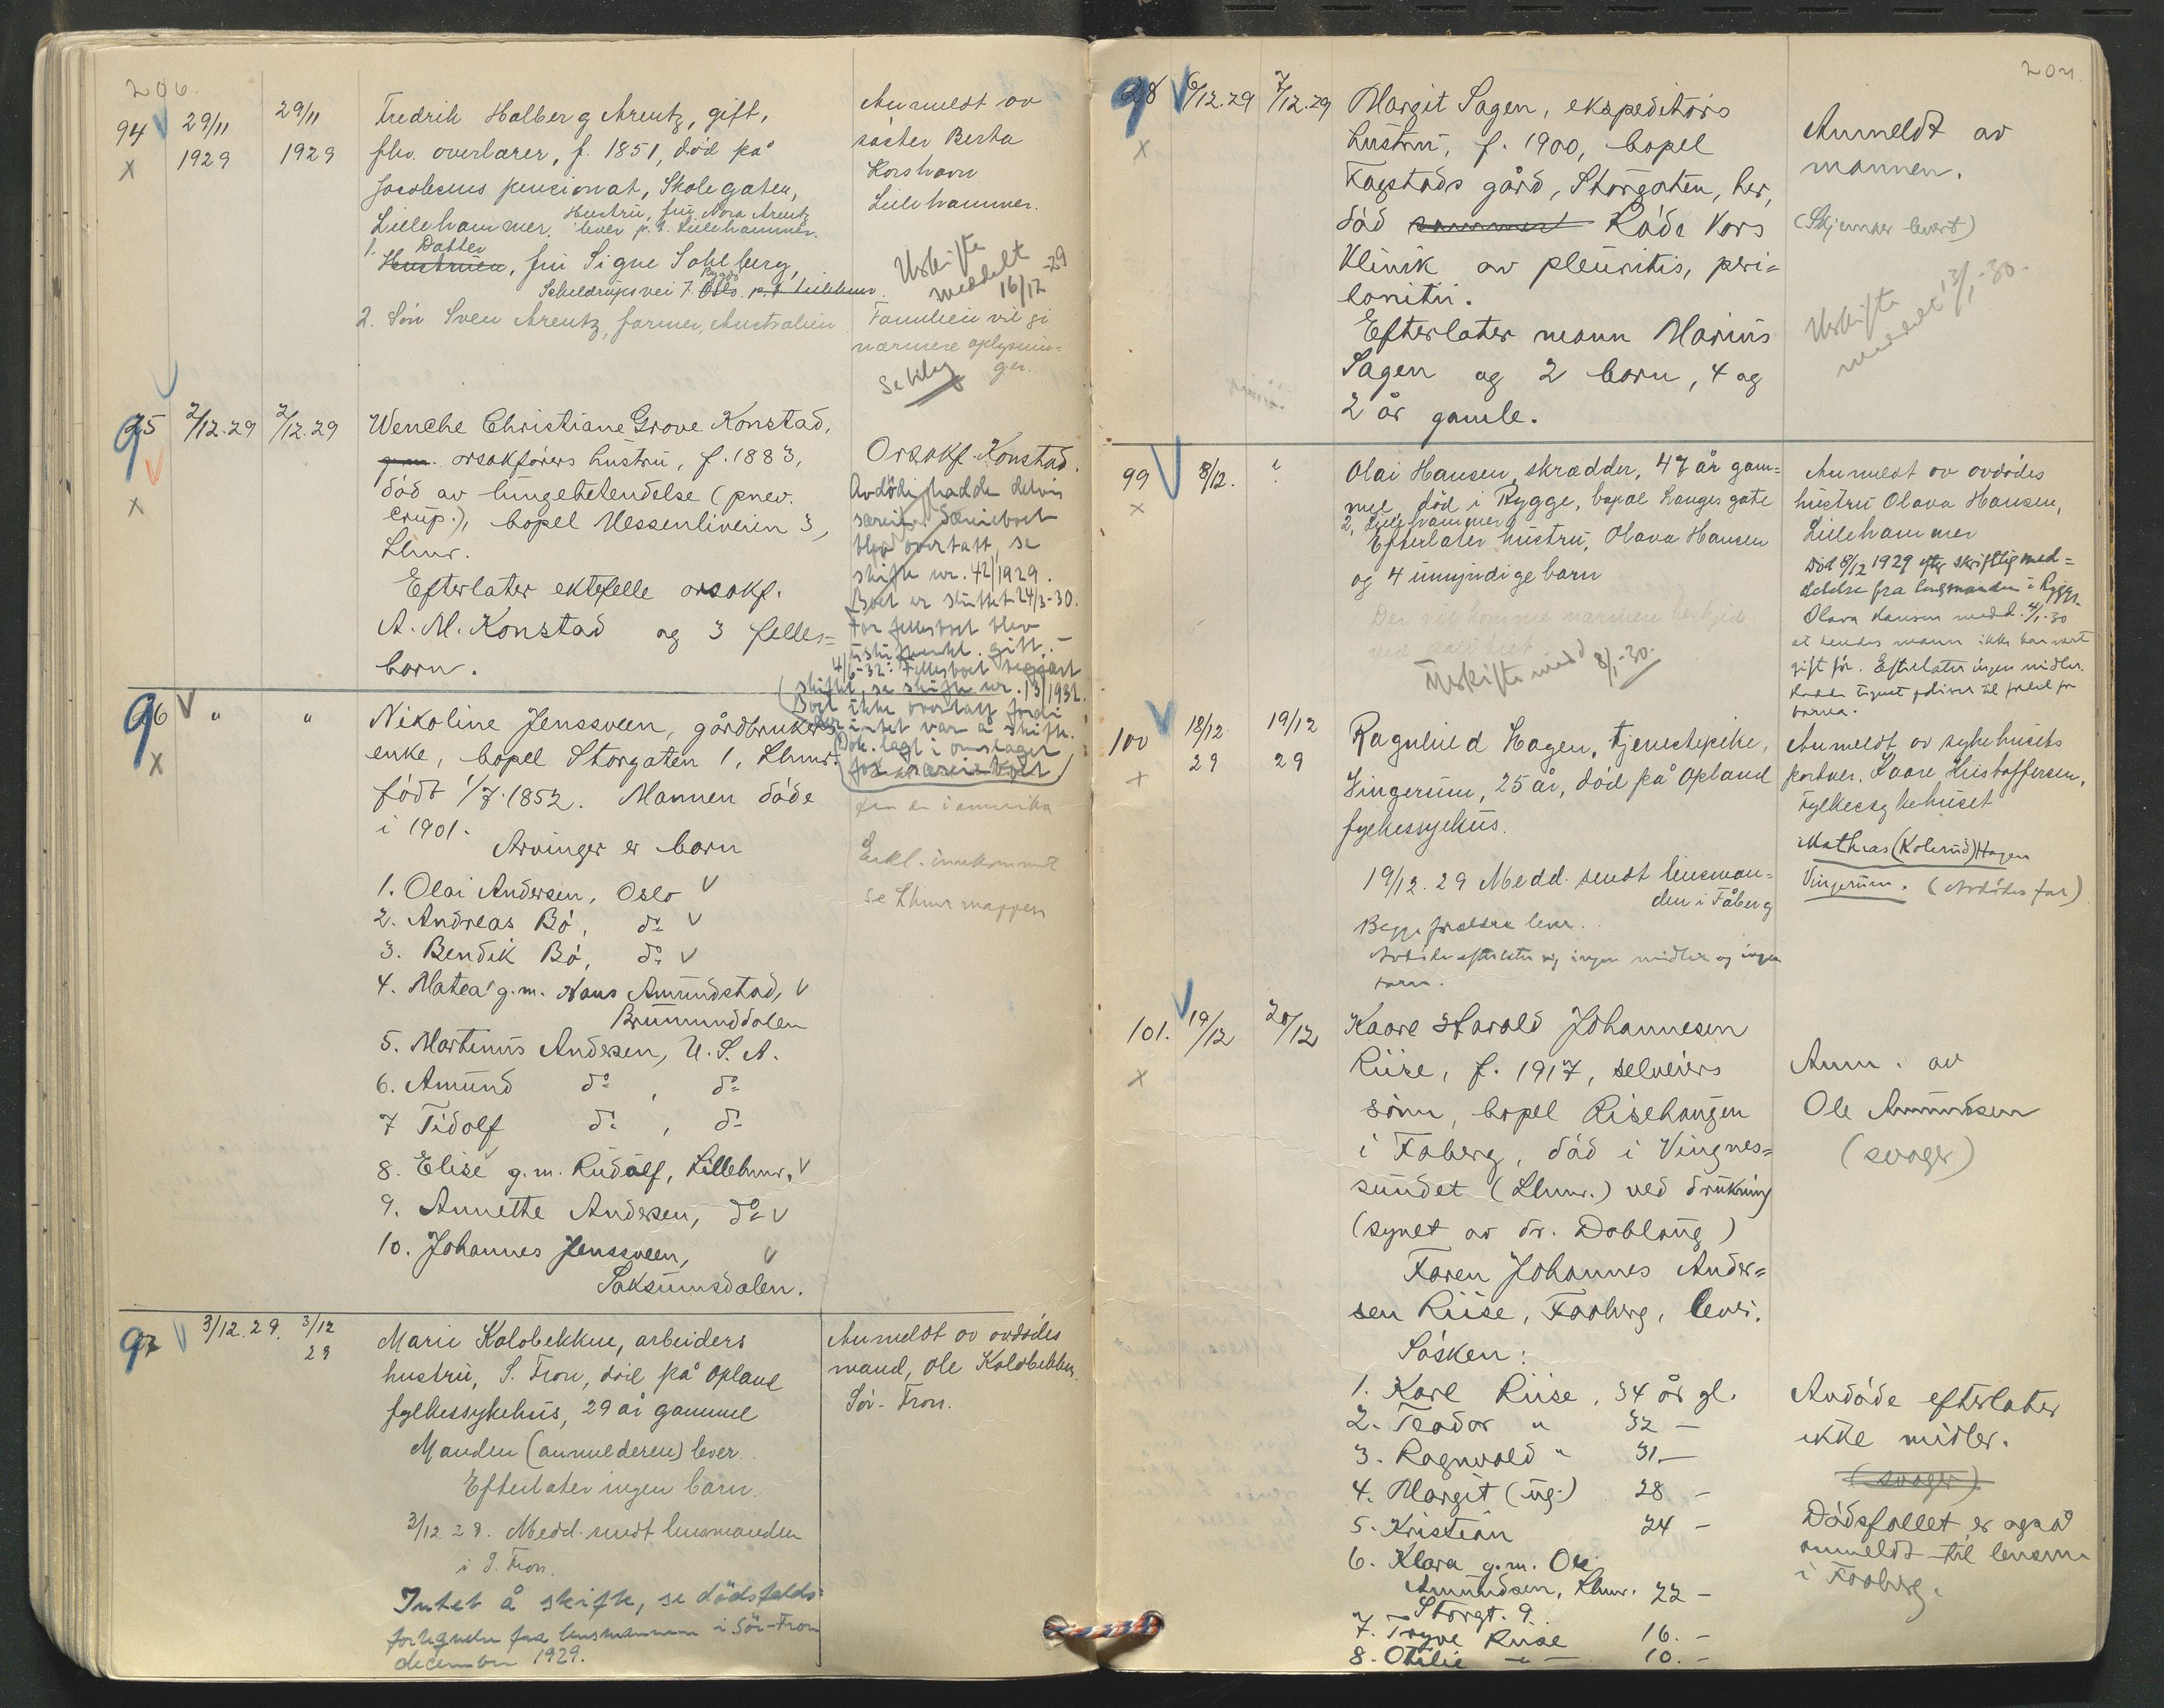 206.
94
X
29/11
1929
29/11
1929
Fredrik Halberg Arentz, gift,
fhv. overlærer, f. 1851, död på
pensionat, Skolegaten,
Lillehammer. Hustru, fru Nora Arentz
lever p.t. Lillehammer.
1. Datter
Hustruen, fru Signe Sohlberg,
Bygdö
Scheldrupsvei 7. Oslo. p.t. Lillehmr.
2. Sön Sven Arentz, farmer, Australien
Anmeldt av
söster Berta
Korshavn
Lillehammer.
Uskifte
meddelt
16/12-29
Familien vil gi
nærmere oplysnin=
ger.
95
X
2/12.29
2/12.29
Wenche Christiane Grove Konstad,
g.m. orsakförers hustru, f. 1883,
död av lungebetendelse (pnev.
crup.), bopel Nessenliveien 3,
Lhmr.
Efterlater ektefelle orsakf.
A. M. Konstad og 3 felles=
barn.
Orsakf. Konstad.
Avdöde hadde delvis
særeie. Særieboet
blev overtatt, se
skifte nr. 42/1929.
Boet er sluttet 24/3-30.
For fellesboet blev
uskifte gitt. -
4/6-32: Fellesboet begjært
skiftet, se skifte nr. 13/1932.
Boet ikke overtatt fordi
der intet var å skifte.
Dok. lagt i omslaget
for særieboet
96
X
"
"
Nikoline Jenssveen, gårdbrukers
enke, bopel Storgaten 1, Lhmr.
födt 1/7.1852. Mannen döde
i 1901.
Arvinger er barn
1. Olai Andersen, Oslo
2. Andreas Bö, do
3. Bendik Bö, do
4. Matea g.m. Hans Amundstad,
Brumunddalen
5. Martinus Andersen, U.S.A.
6. Amund do , do
7 Tidolf do , do
8. Elise g.m. Rudolf, Lillehmr.
9. Annette Andersen, do
10. Johannes Jenssveen,
Saksumsdalen.
er i amerika
Erkl. innkommet
se Lhmr mappen
97
3/12.29.
3/12
29
Marie Kolobekken, arbeiders
hustru, S. Fron, död på Opland
fylkessykehus, 29 år gammel
Manden (anmelderen) lever.
Efterlater ingen barn.
3/12.29. Medd. sendt lensmanden
i S. Fron.
Intet å skifte, se dödsfalds=
fortegnelse fra lensmannen i Sör-Fron
december 1929.
Anmeldt av avdödes
mand, Ole Kolobekken
Sör-Fron.
207.
98
X
6/12.29
7/12.29
Margit Sagen, ekspeditörs
hustru, f. 1900, bopel
Fagstads gård, Storgaten, her,
död sammen Röde Kors
Klinik av pleuritis, peri=
tonitis.
Efterlater mann Marius
Sagen og 2 barn, 4 og
2 år gamle.
Anmeldt av
mannen.
(Skjemaer levert)
Uskifte
meddelt 13/1-30.
99
X
8/12.
?
Olai Hansen, skrædder, 47 år gam=
mel, död i Rygge, bopæl Langes gate
2, Lillehammer
Efterlater hustru, Olava Hansen
og 4 umyndige barn
Uskifte medd 8/1-30.
Anmeldt av avdödes
hustru Olava Hansen,
Lillehammer
Död 8/12 1929 efter skriftlig med=
delelse fra lensmanden i Rygge.
Olava Hansen medd. 4/1-30
at hendes mann ikke har vært
gift för. Efterlater ingen midler.
Hadde tegnet polise til fordel for
barna.
100
X
18/12
29
19/12
29
Ragnhild Hagen, tjenestepike,
Vingerum, 25 år, död på Opland
fylkessykehus.
19/12.29 Medd. sendt lensman=
den i Fåberg
Begge foreldre lever.
Avdöde efterlater sig ingen midler og ingen
barn.
Anmeldt av sykehusets
portner, Kaare Kristoffersen,
Fylkessykehuset
Mathias (Kolerud) Hagen
Vingerum. (Avdödes far)
101.
X
19/12
20/12
Kaare Harald Johannesen
Riise, f. 1917, selveiers
sönn, bopel Risehaugen
i Faberg, död i Vingnes=
sundet (Lhmr.) ved drukning
(synet av dr. Doblaug)
Faren Johannes Ander=
sen Riise, Faaberg, lever.
Sösken:
1. Karl Riise, 34 år gl.
2. Teodor " 32 -
3. Ragnvald " 31 -
4. Margit (ug.) 28 -
5. Kristian 24 -
6. Klara g.m. Ole
Amundsen, Lhmr. 22 -
Storgt. 9.
7. Trygve Riise 16. -
8. Otilie - " - 10. -
Anm. av
Ole Amundsen
(svoger)
Avdöde efterlater
ikke midler.
(svoger)
Dödsfallet er også
anmeldt til lensm.
i Faaberg.